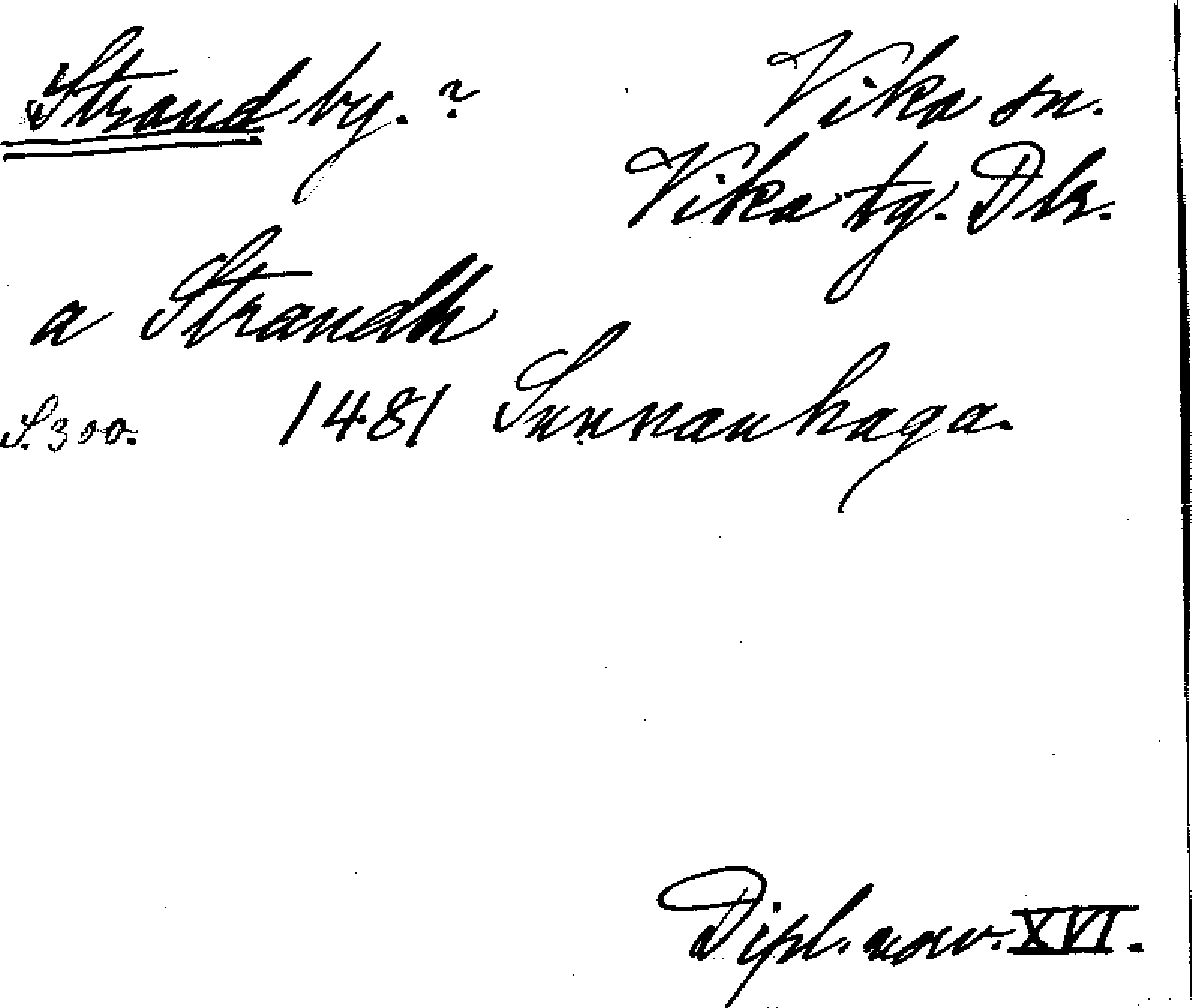 Strand by. ? Vika sn.
Vika tg. Dlr.
a Strandh
S. 300. 1481 Sunnanhaga.
Dipl. norv. XVI.